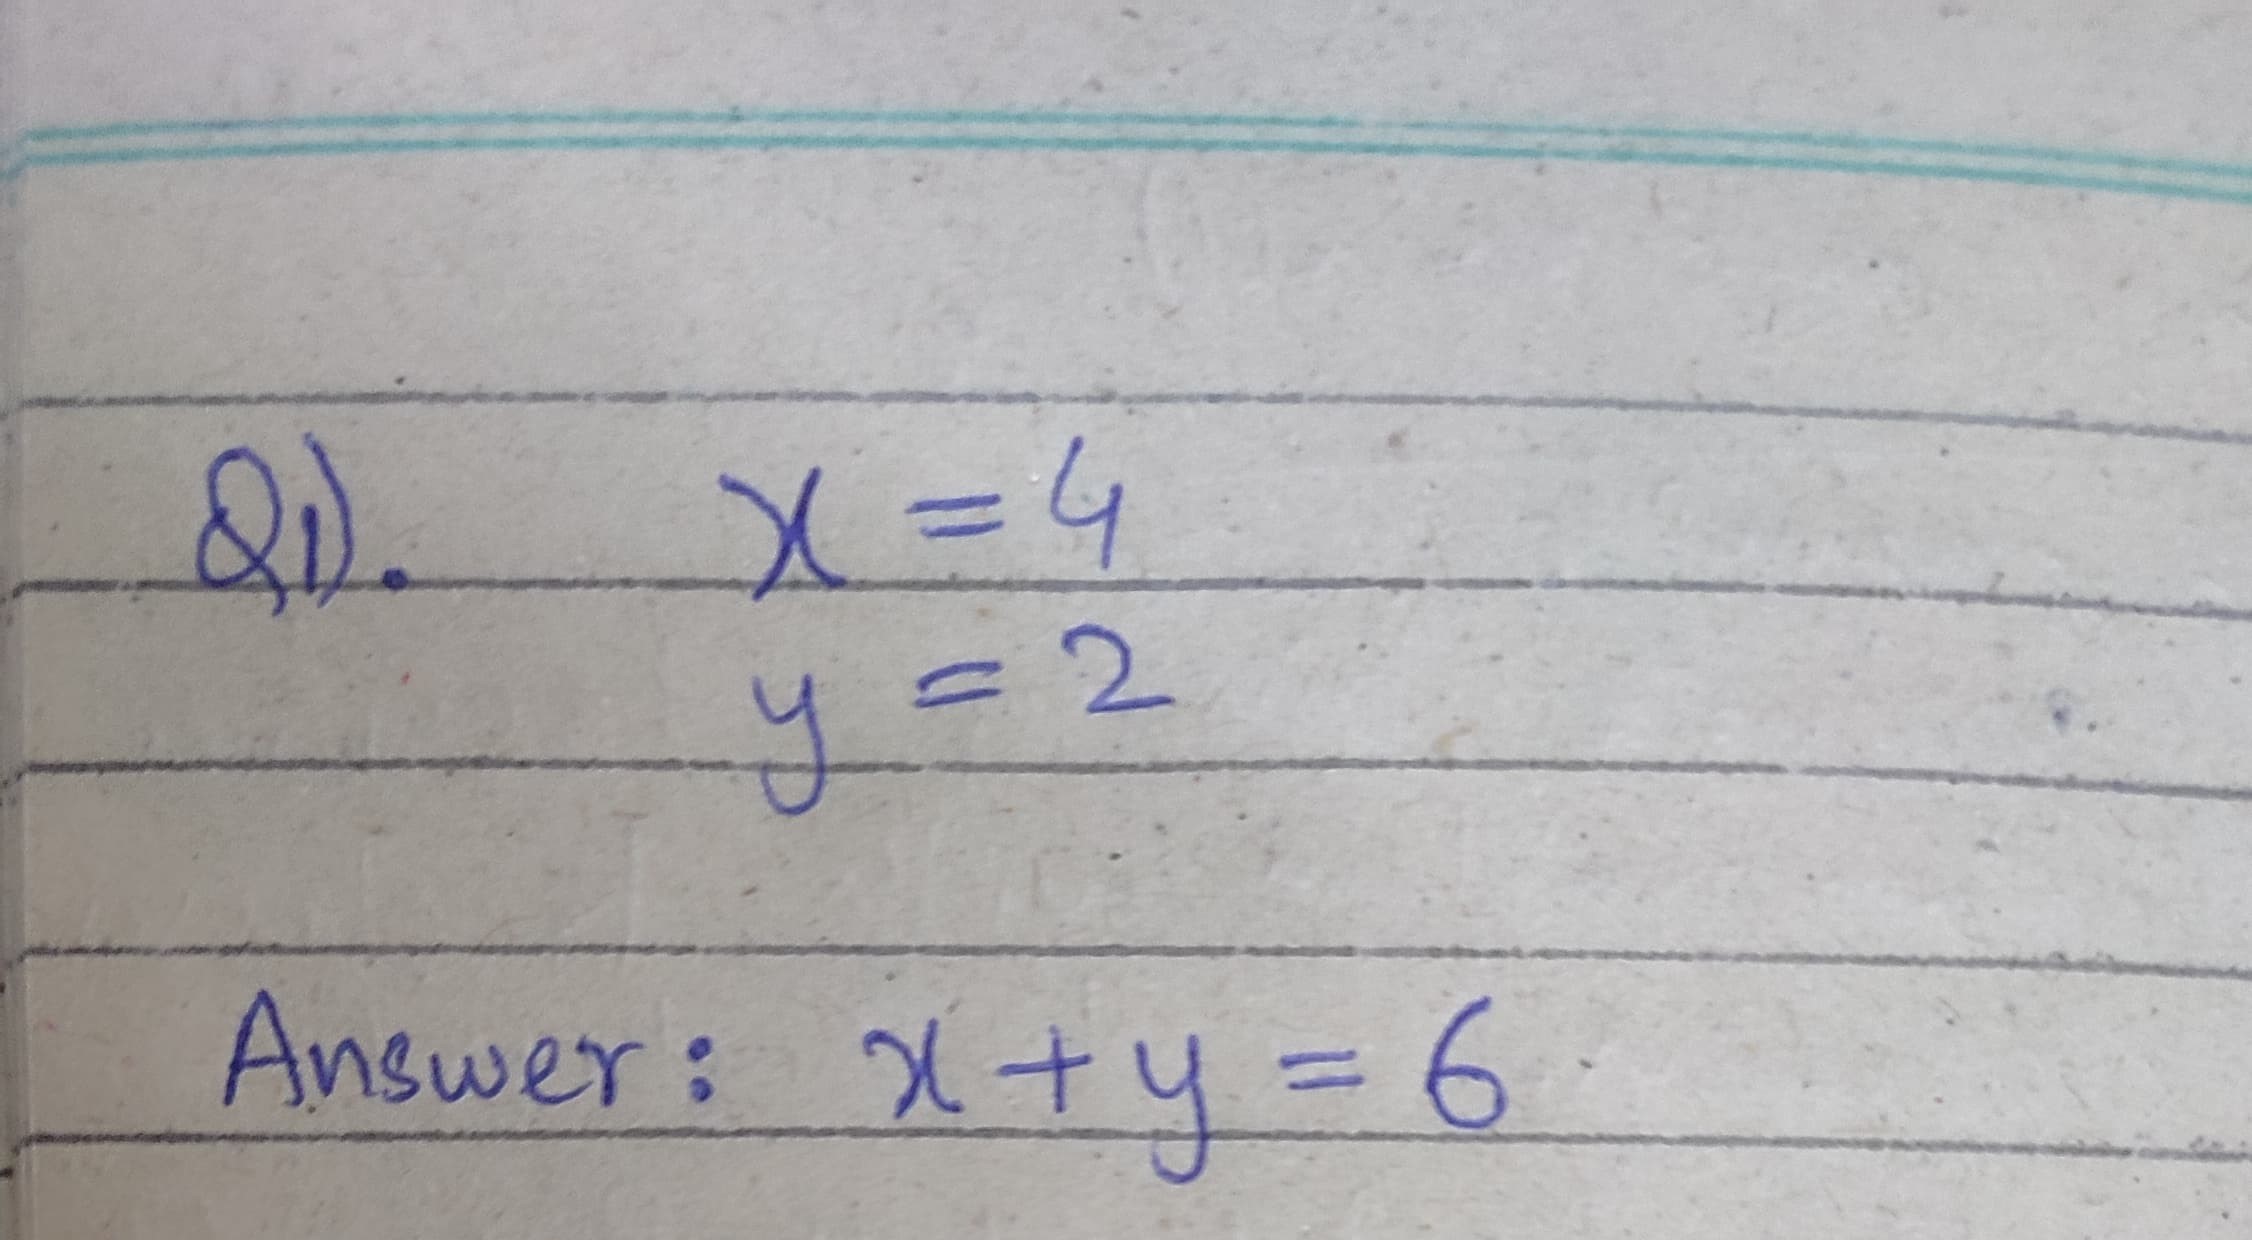 Q1). x = 4
y = 2
Answer: x + y = 6